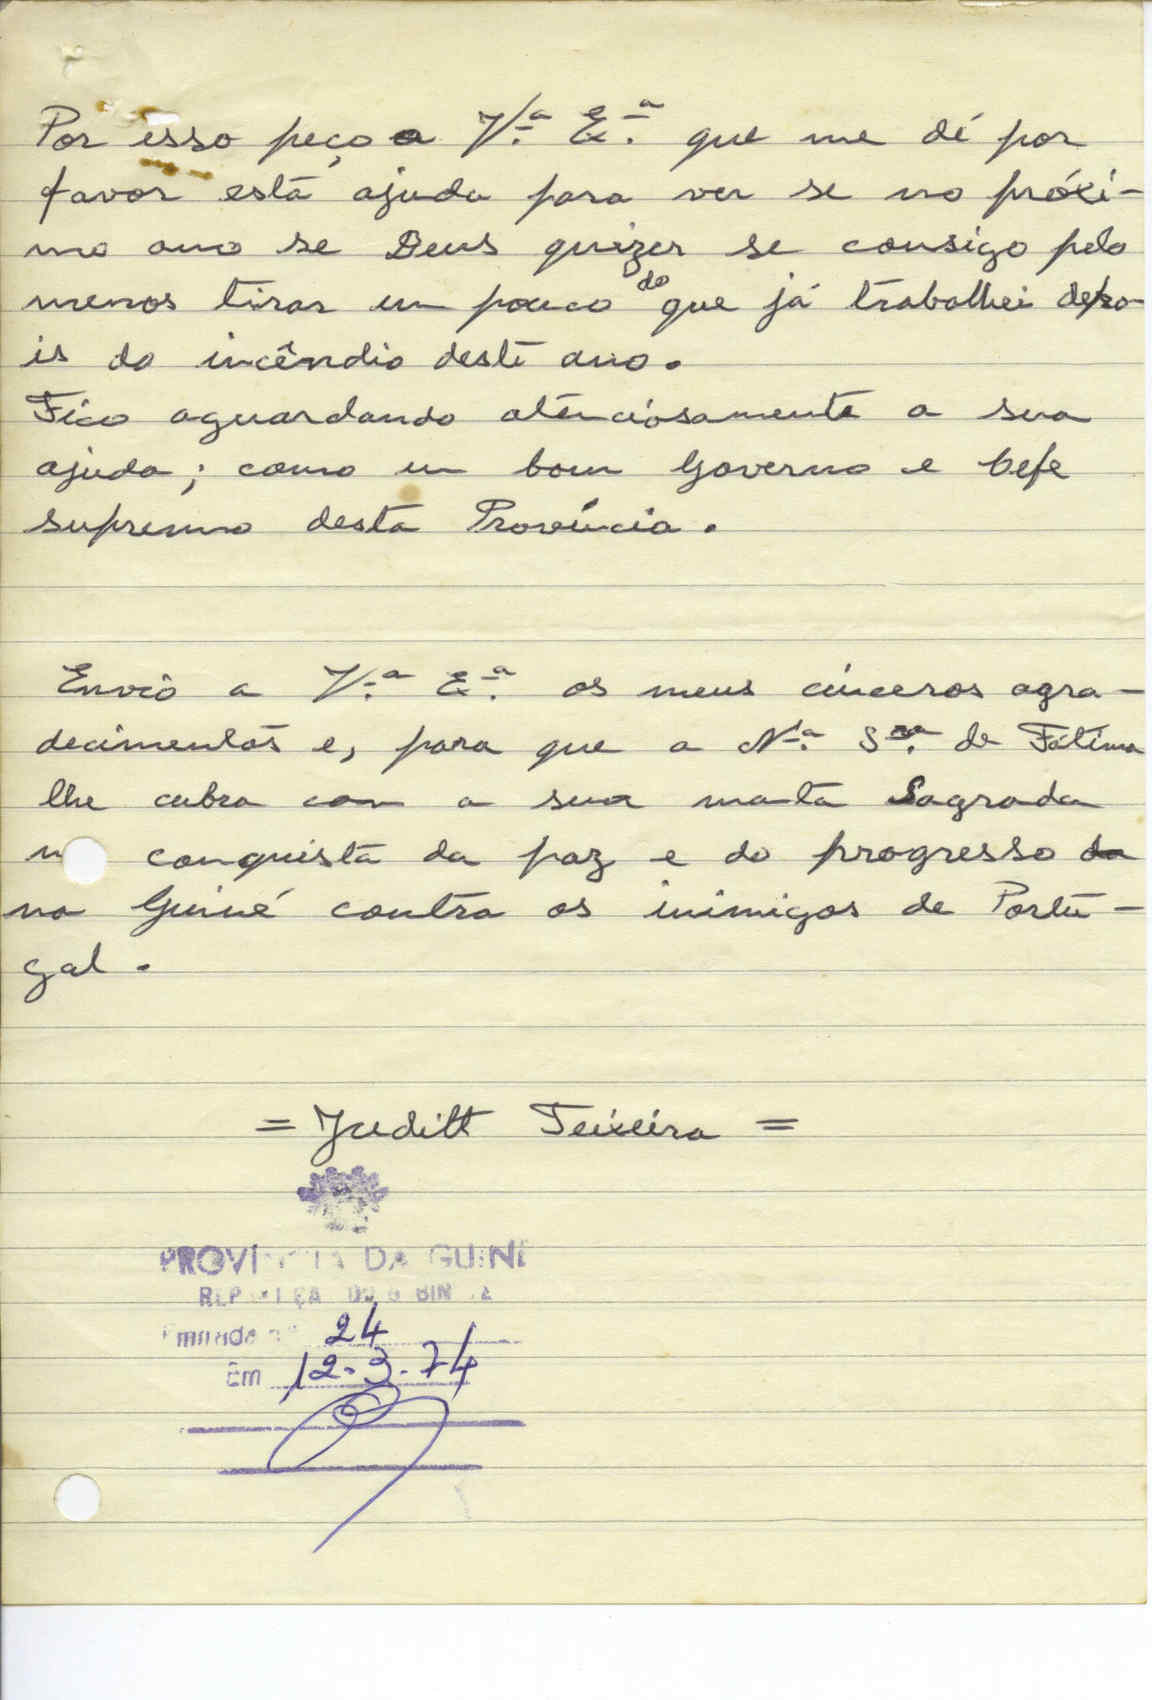 Por isso peço a V.ª Ex.ª que me dê por
favor esta ajuda para ver se no próxi-
mo ano se Deus quizer se consigo pelo
menos tirar um pouco do que já trabalhei depo-
is do incêndio deste ano.
Fico aguardando atênciosamente a sua
ajuda; como um bom Governo e Cefe
supremo desta Província.
Envio a V.ª Ex.ª os meus cinceros agra-
decimentos e, para que a N.ª Sra. de Fátima
lhe cubra com a sua manta Sagrada
n conquista da paz e do progresso da
na Guiné contra os inimigos de Portu-
gal.
= Judith Teixeira =
PROVÍNCIA DA GUINÉ
REPARTIÇÃO DO GABINETE
Entrada n.º 24
Em 12-3-74